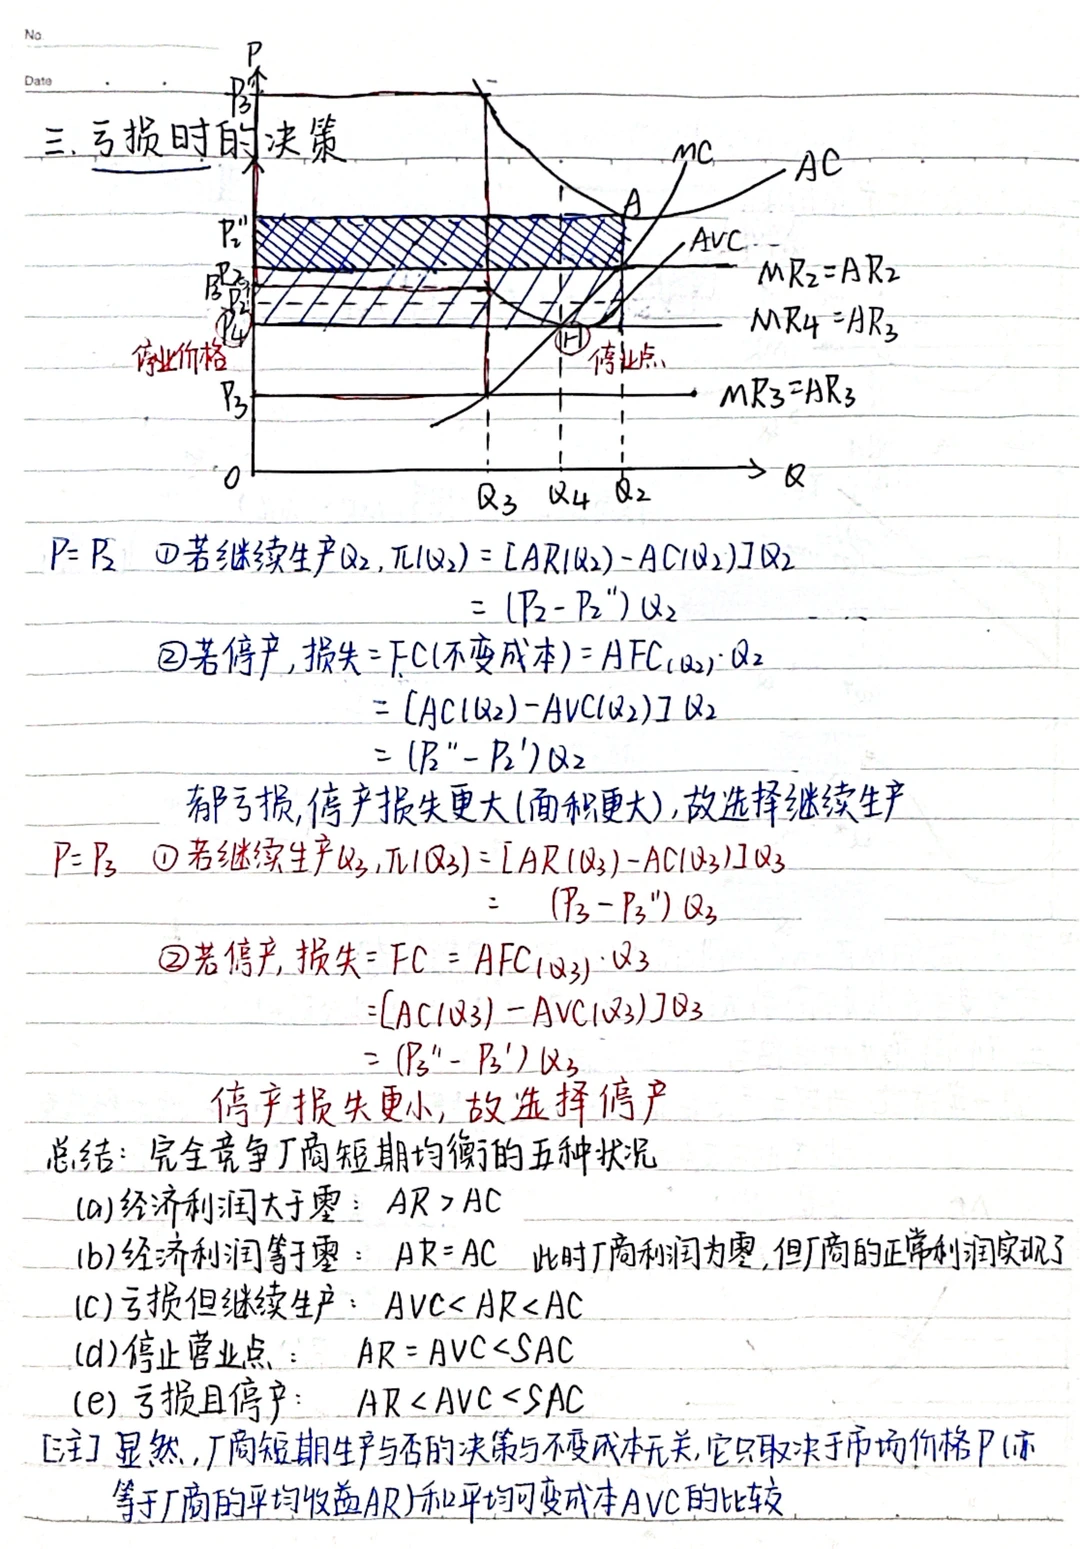 No.
Date
P
P3"
三.亏损时的决策
MC
AC
A
P2"
AVC
P2
MR2=AR2
P3'
P2'
P4
MR4=AR3
H
停业价格
停业点
P3
MR3=AR3
O
Q
Q3 Q4 Q2
P=P2 ①若继续生产Q2,π(Q2)=[AR(Q2)-AC(Q2)]Q2
=(P2-P2")Q2
②若停产,损失=FC(不变成本)=AFC(Q2)·Q2
=[AC(Q2)-AVC(Q2)]Q2
=(P2"-P2')Q2
都亏损,停产损失更大(面积更大),故选择继续生产
P=P3 ①若继续生产Q3,π(Q3)=[AR(Q3)-AC(Q3)]Q3
= (P3-P3")Q3
②若停产,损失=FC=AFC(Q3)·Q3
=[AC(Q3)-AVC(Q3)]Q3
=(P3"-P3')Q3
停产损失更小,故选择停产
总结:完全竞争厂商短期均衡的五种状况
(a)经济利润大于零: AR>AC
(b)经济利润等于零: AR=AC 此时厂商利润为零,但厂商的正常利润实现了
(c)亏损但继续生产: AVC<AR<AC
(d)停止营业点: AR=AVC<SAC
(e)亏损且停产: AR<AVC<SAC
[注]显然,厂商短期生产与否的决策与不变成本无关,它只取决于市场价格P(亦
等于厂商的平均收益AR)和平均可变成本AVC的比较